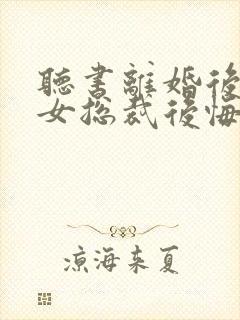 聽書離婚後
女总裁後悔
凉海来夏